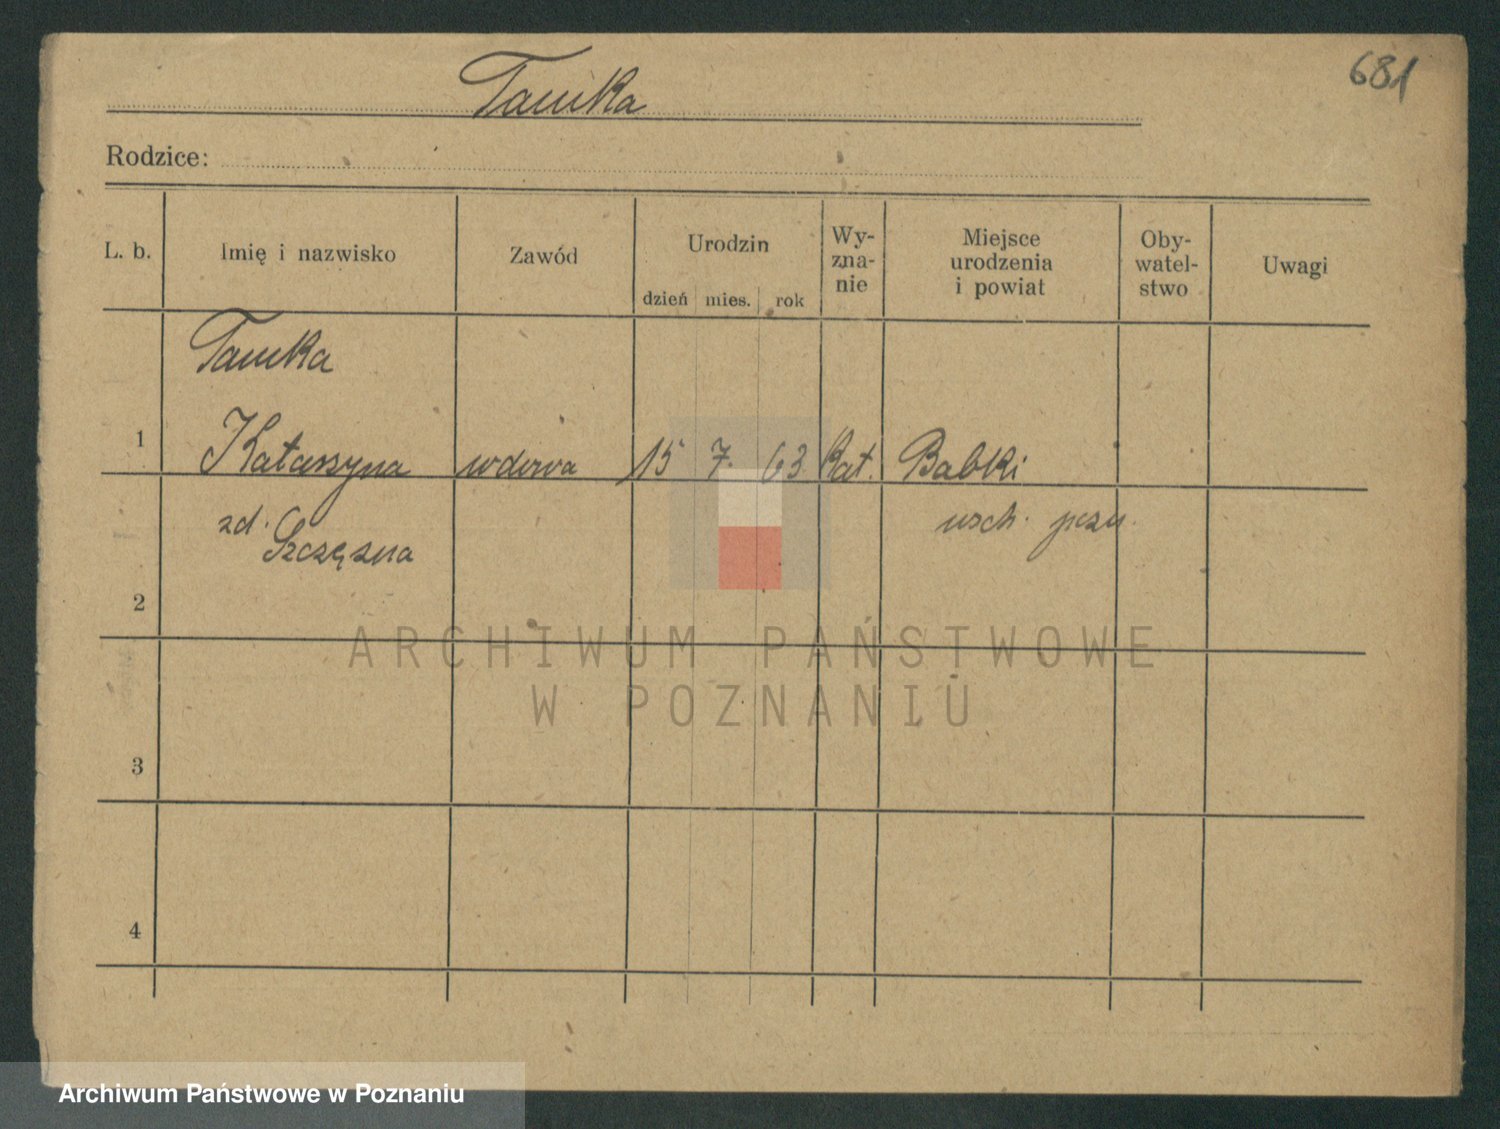 681
Tanika
Rodzice:
L. b.
Imię i nazwisko
Zawód
Urodzin
dzień mies. rok
Wy-
zna-
nie
Miejsce
urodzenia
i powiat
Oby-
watel-
stwo
Uwagi
Tanika
1 Katarzyna wdowa 15 7. 63 Kat. Babki
zd. Szczęsna wsch. pozn.
2
3
4
ARCHIWUM PAŃSTWOWE
W POZNANIU
Archiwum Państwowe w Poznaniu